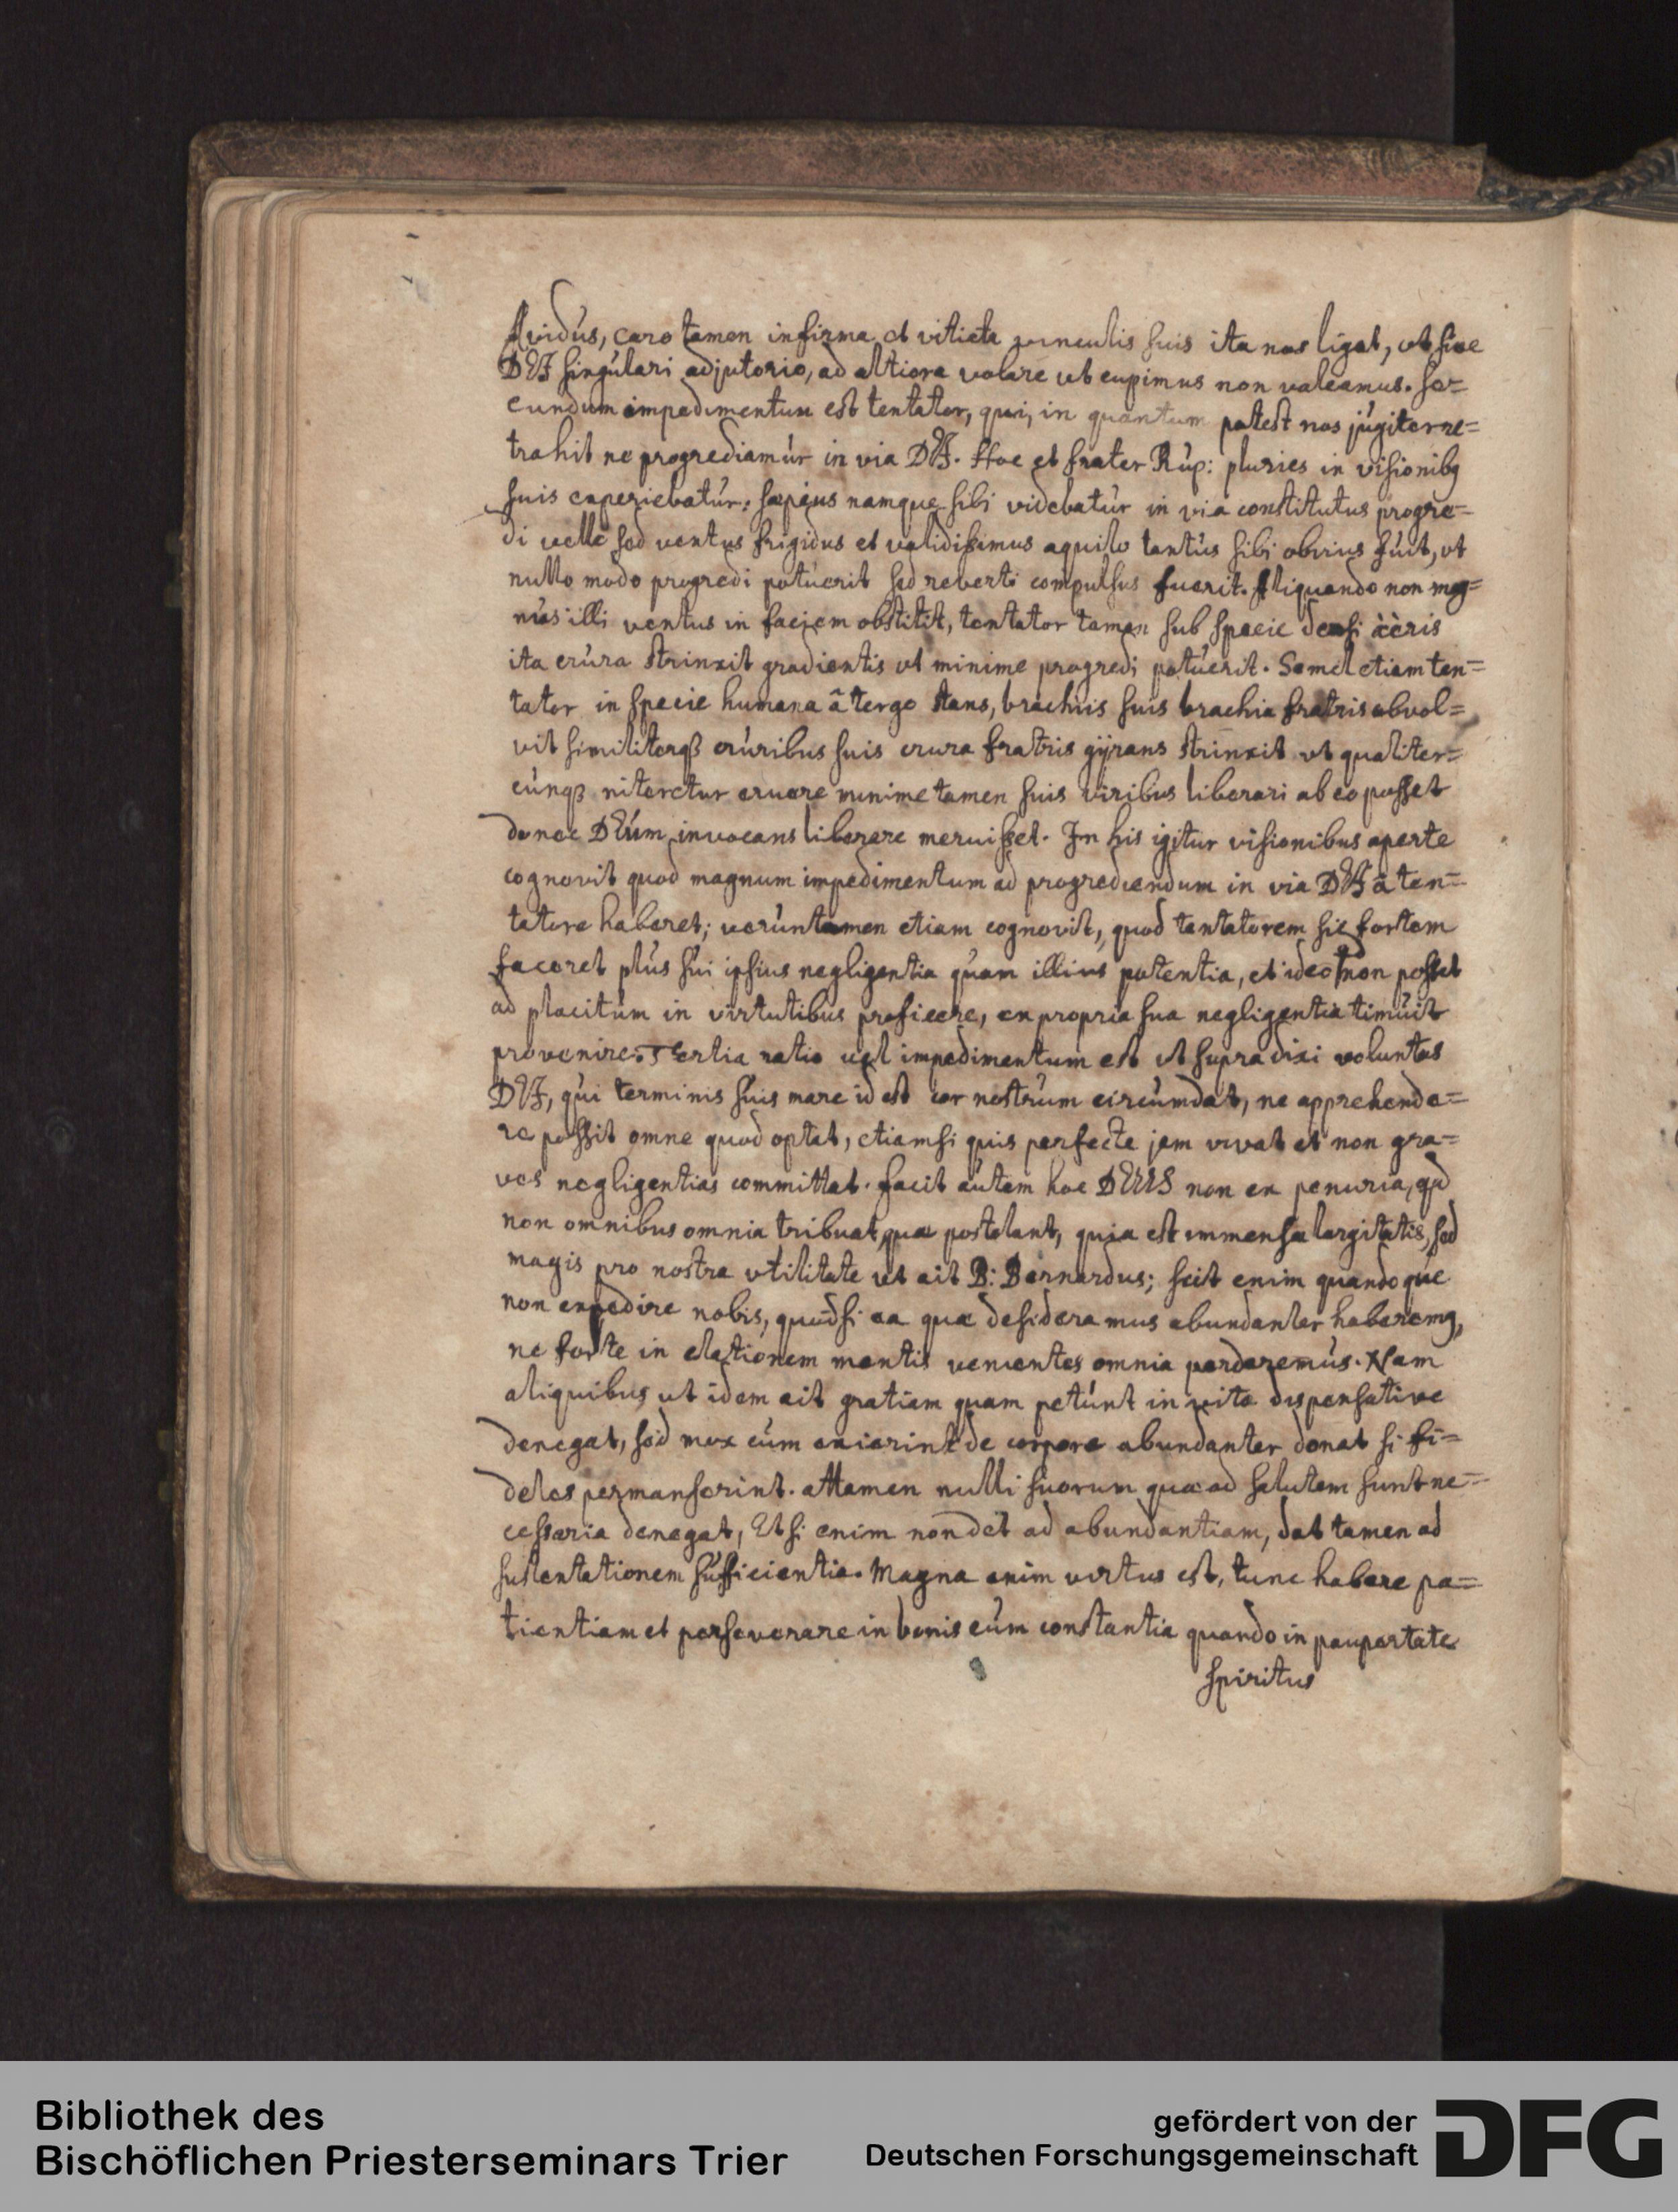 Avidus, caro tamen infirma et vitiata vinculis suis ita nos ligat, ut sine
DEI singulari adjutorio, ad altiora volare ut cupimus non valeamus. Se=
cundum impedimentum est tentator, qui, in quantum potest nos jugiter re=
trahit ne progrediamur in via DEI. Hoc et frater Rup: pluries in visionibq
suis experiebatur: sæpius namque sibi videbatur in via constitutus progre=
di velle sed ventus frigidus et validissimus aquilo tantus sibi obvius fuit, ut
nullo modo progredi potuerit sed reverti compulsus fuerit. Aliquando non mag=
nus illi ventus in faciem obstitit, tentator tamen sub specie densi aëris
ita crura strinxit gradientis ut minime progredi potuerit. Semel etiam ten=
tator in specie humana â tergo stans, brachiis suis brachia fratris obvol=
vit similiterqȝ cruribus suis crura fratris gÿrans strinxit ut qualiter=
cunqȝ niteretur eruere minime tamen suis viribus liberari ab eo posset
donec DEum invocans liberare meruisset. In his igitur visionibus aperte
cognovit quod magnum impedimentum ad progrediendum in via DEI â ten=
tatore haberet; veruntamen etiam cognovit, quod tentatorem sic fortem
faceret plus sui ipsius negligentia quam illius potentia, et ideo non posset
ad placitum in virtutibus proficere, ex propria sua negligentia timuit
provenire. Tertia ratio vel impedimentum est ut supra dixi voluntas
DEI, qui terminis suis mare id est cor nostrum circumdat, ne apprehende=
re possit omne quod optat, etiamsi quis perfecte jam vivat et non gra=
ves negligentias committat. facit autem hoc DEUS non ex penuria, qd
non omnibus omnia tribuat, quæ postolant, quia est immensa largitatis, sed
magis pro nostra utilitate ut ait B: Bernardus; scit enim quandoque
non expedire nobis, quodsi ea quæ desideramus abundanter haberemq,
ne forte in elationem mentis venientes omnia perderemus. Nam
aliquibus ut idem ait gratiam quam petunt in vita dispensative
denegat, sed mox cum exierint de corpore abundanter donat si fi=
deles permanserint. attamen nulli suorum quæ ad salutem sunt ne=
cessaria denegat, Etsi enim non det ad abundantiam, dat tamen ad
sustentationem sufficientia. Magna enim virtus est, tunc habere pa=
tientiam et perseverare in bonis cum constantia quando in paupertate
spiritus
Bibliothek des
Bischöflichen Priesterseminars Trier
gefördert von der
Deutschen Forschungsgemeinschaft
DFG